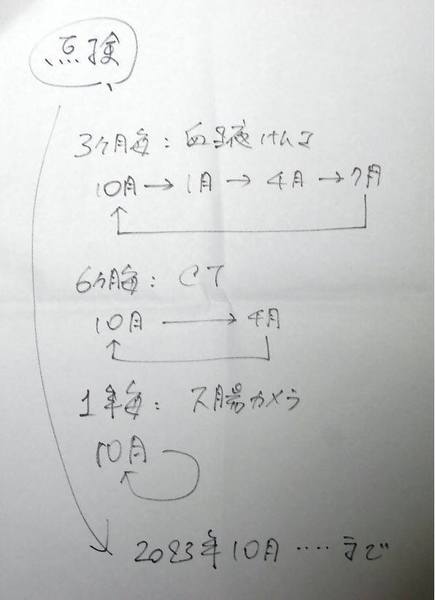 点検
3ヶ月毎: 血液けんさ
10月→1月→4月→7月
6ヶ月毎: CT
10月→4月
1年毎: 大腸カメラ
10月
2023年10月‥‥まで